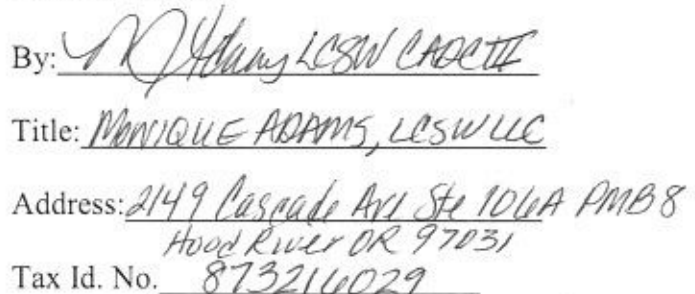 By: M Adams LCSW CADCIII
Title: MONIQUE ADAMS, LCSW LLC
Address: 2149 Cascade Ave Ste 106A PMB 8
Hood River OR 97031
Tax Id. No. 873216029